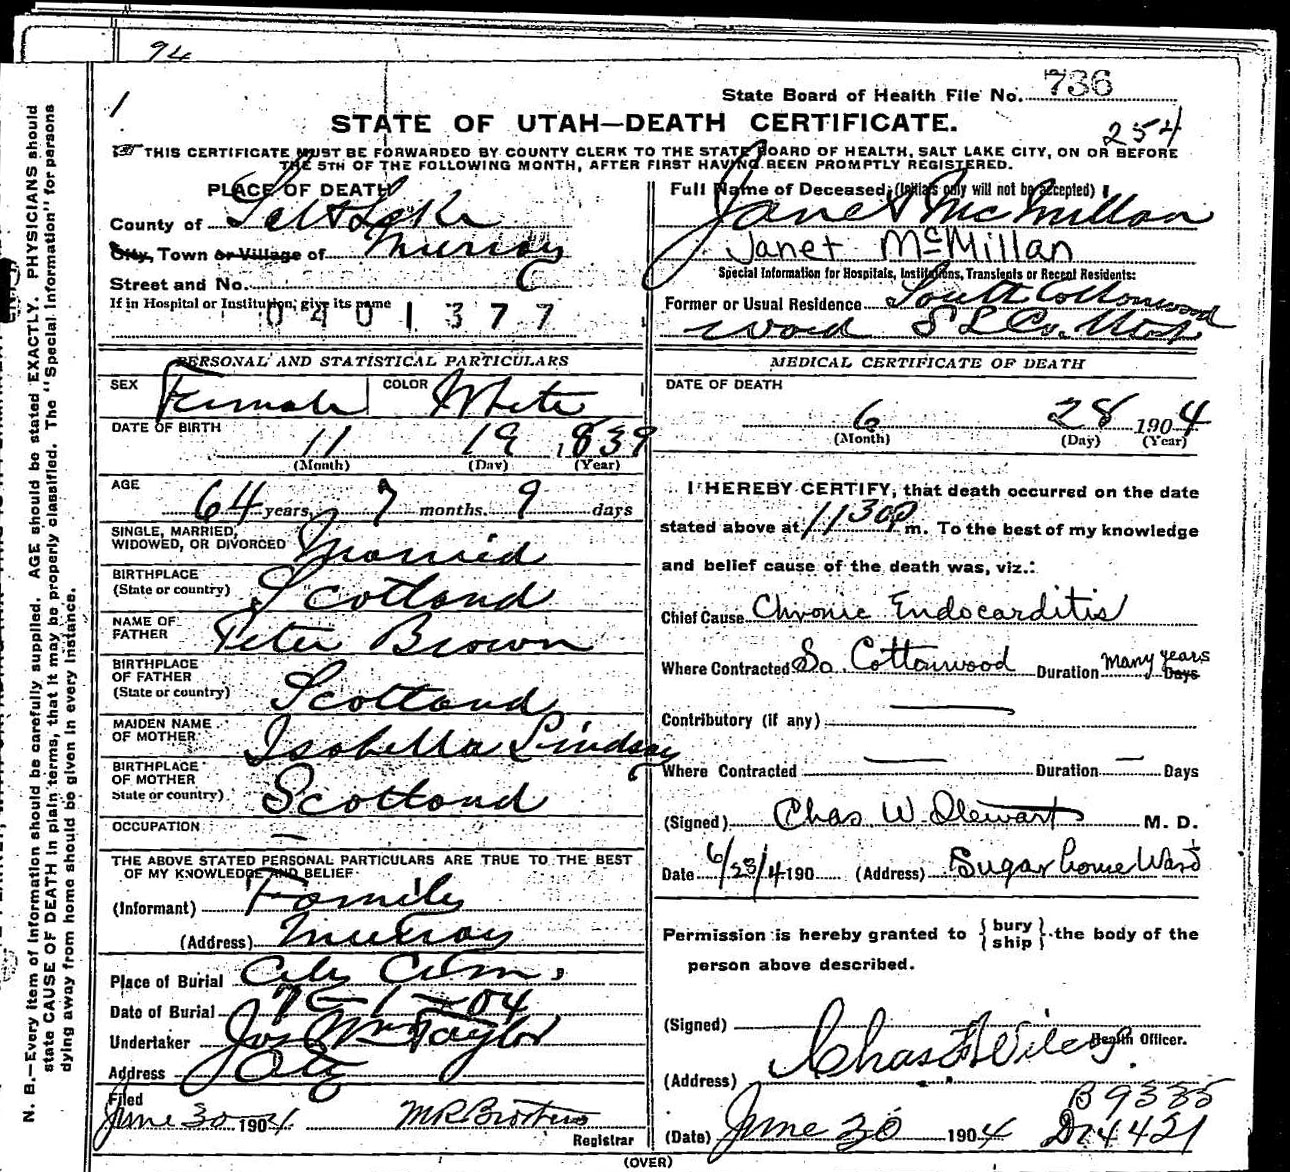 94
1
State Board of Health File No. 736
STATE OF UTAH—DEATH CERTIFICATE.
254
THIS CERTIFICATE MUST BE FORWARDED BY COUNTY CLERK TO THE STATE BOARD OF HEALTH, SALT LAKE CITY, ON OR BEFORE
THE 5TH OF THE FOLLOWING MONTH, AFTER FIRST HAVING BEEN PROMPTLY REGISTERED.
PLACE OF DEATH
County of Salt Lake
City, Town or Village of Murray
Street and No. C
If in Hospital or Institution, give its name
0401377
Full Name of Deceased: (Initials only will not be accepted)
Janet McMillan
Janet McMillan
Special Information for Hospitals, Institutions, Transients or Recent Residents:
Former or Usual Residence South Cottonwood
Ward S L Co. Utah
PERSONAL AND STATISTICAL PARTICULARS
SEX Female COLOR White
DATE OF BIRTH
11 19 1839
(Month) (Day) (Year)
AGE
64 years, 7 months. 9 days
SINGLE, MARRIED,
WIDOWED, OR DIVORCED Married
BIRTHPLACE
(State or country) Scotland
NAME OF
FATHER Peter Brown
BIRTHPLACE
OF FATHER
(State or country) Scotland
MAIDEN NAME
OF MOTHER Isabella Lindsay
BIRTHPLACE
OF MOTHER
State or country) Scotland
OCCUPATION —
THE ABOVE STATED PERSONAL PARTICULARS ARE TRUE TO THE BEST
OF MY KNOWLEDGE AND BELIEF
(Informant) Family
(Address) Murray
Place of Burial City Cem.
Date of Burial 7 - 1 - 04
Undertaker Jos Wm Taylor
Address City
Filed
June 30 1904. M R Brothers
Registrar
MEDICAL CERTIFICATE OF DEATH
DATE OF DEATH
6 28 1904
(Month) (Day) (Year)
I HEREBY CERTIFY, that death occurred on the date
stated above at 11 30 P m. To the best of my knowledge
and belief cause of the death was, viz.:
Chief Cause Chronic Endocarditis
Where Contracted So. Cottonwood Duration many years Days
Contributory (if any) —
Where Contracted — Duration — Days
(Signed) Chas W. Stewart M. D.
Date 6/23/4 190 (Address) Sugar house Ward
Permission is hereby granted to { bury
ship } the body of the
person above described.
(Signed) Chas F Wilcox Health Officer.
(Address)
B 9335
(Date) June 30 1904 D24421
(OVER)
N. B.—Every item of information should be carefully supplied. AGE should be stated EXACTLY. PHYSICIANS should
state CAUSE OF DEATH in plain terms, that it may be properly classified. The "Special Information" for persons
dying away from home should be given in every instance.